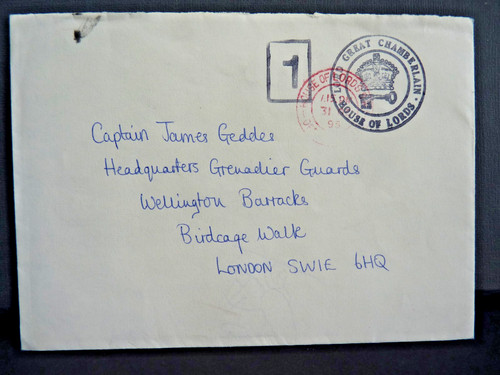 1
LORD GREAT CHAMBERLAIN
HOUSE OF LORDS
HOUSE OF LORDS
31
Captain James Geddes
Headquarters Grenadier Guards
Wellington Barracks
Birdcage Walk
LONDON SW1E 6HQ